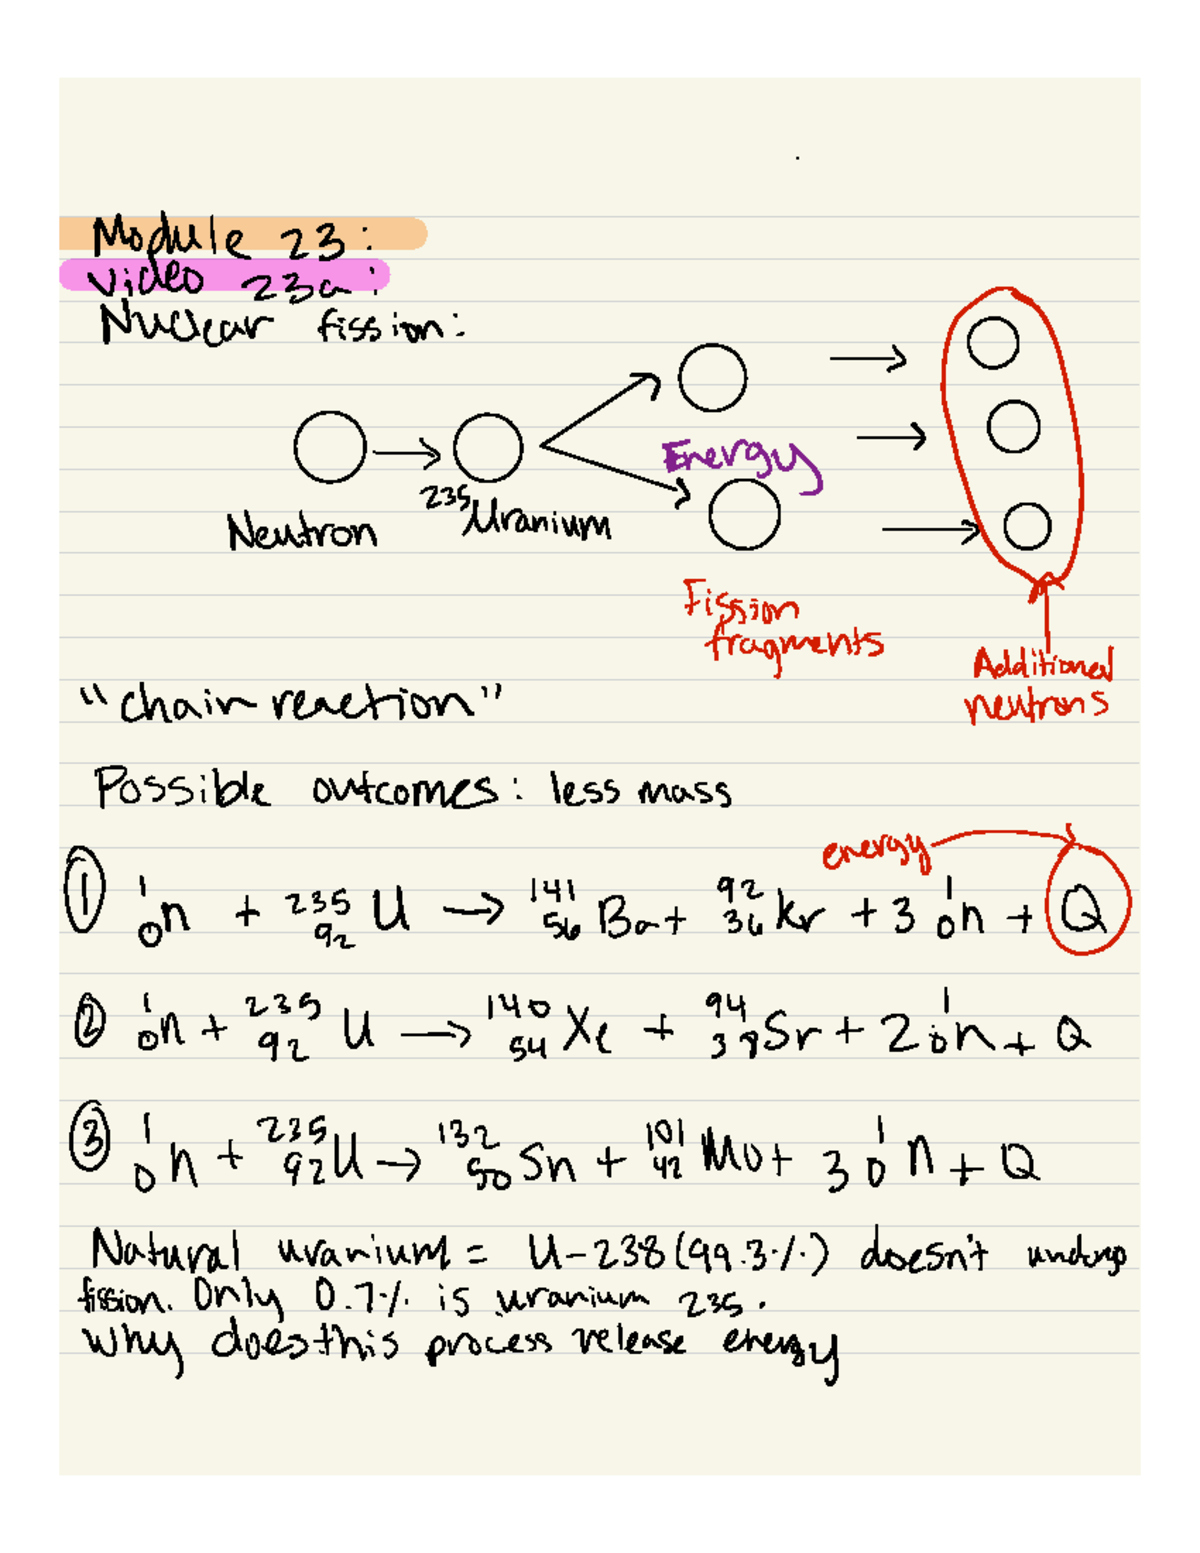 Module 23:
Video 23a:
Nuclear fission:
Energy
235 Uranium
Neutron
Fission
fragments
Additional
neutrons
"chain reaction"
Possible outcomes: less mass
energy
① ¹₀n + ²³⁵₉₂U → ¹⁴¹₅₆Ba + ⁹²₃₆Kr + 3 ¹₀n + Q
② ¹₀n + ²³⁵₉₂U → ¹⁴⁰₅₄Xe + ⁹⁴₃₈Sr + 2 ¹₀n + Q
③ ¹₀n + ²³⁵₉₂U → ¹³²₅₀Sn + ¹⁰¹₄₂Mo + 3 ¹₀n + Q
Natural uranium = U-238 (99.3%) doesn't undergo
fission. Only 0.7% is uranium 235.
Why does this process release energy